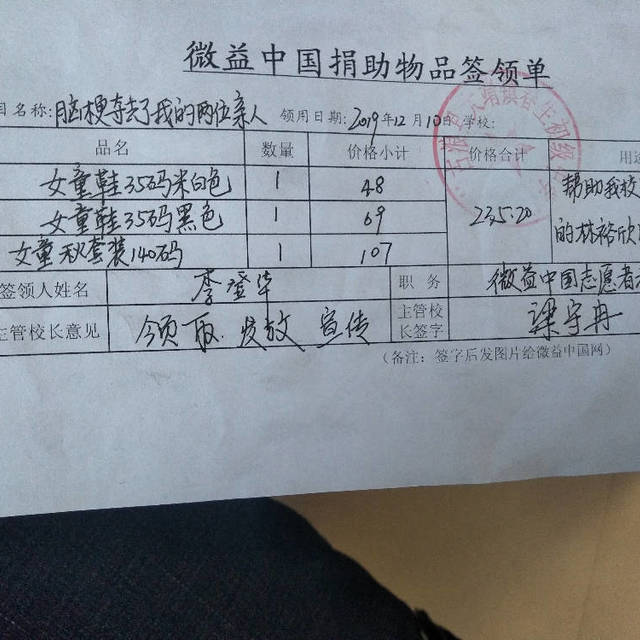 微益中国捐助物品签领单
目名称:脑梗夺去了我的两位亲人 领用日期:2019年12月10日 学校:
品名 数量 价格小计 价格合计 用途
女童鞋35码米白色 1 48
女童鞋35码黑色 1 69 235.20 帮助我校
女童秋套装140码 1 107 的林裕欣
签领人姓名 李登华 职务 微益中国志愿者
主管校长意见 领取.发放 宣传 主管校长签字 梁宇冉
(备注:签字后发图片给微益中国网)